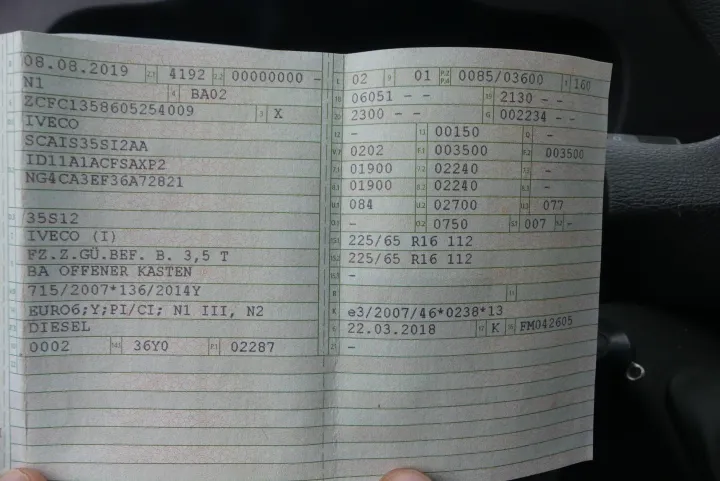 08.08.2019 2.1 4192 2.2 00000000 -
N1 4 BA02
ZCFC1358605254009 3 X
IVECO
SCAIS35SI2AA
ID11A1ACFSAXP2
NG4CA3EF36A72821
35S12
IVECO (I)
FZ.Z.GÜ.BEF. B. 3,5 T
BA OFFENER KASTEN
715/2007*136/2014Y
EURO6;Y;PI/CI; N1 III, N2
DIESEL
0002 36Y0 02287
L 02 9 01 P.2 P.4 0085/03600 T 160
18 06051 - - 19 2130 - -
20 2300 - - G 002234 - -
12 - 13 00150 Q -
V.7 0202 F.1 003500 F.2 003500
7.1 01900 7.2 02240 7.3 -
8.1 01900 8.2 02240 8.3 -
U.1 084 U.2 02700 U.3 077
O.1 - O.2 0750 S.1 007 S.2 -
15.1 225/65 R16 112
15.2 225/65 R16 112
15.3 -
R 11
K e3/2007/46*0238*13
6 22.03.2018 17 K 16 FM042605
21 -